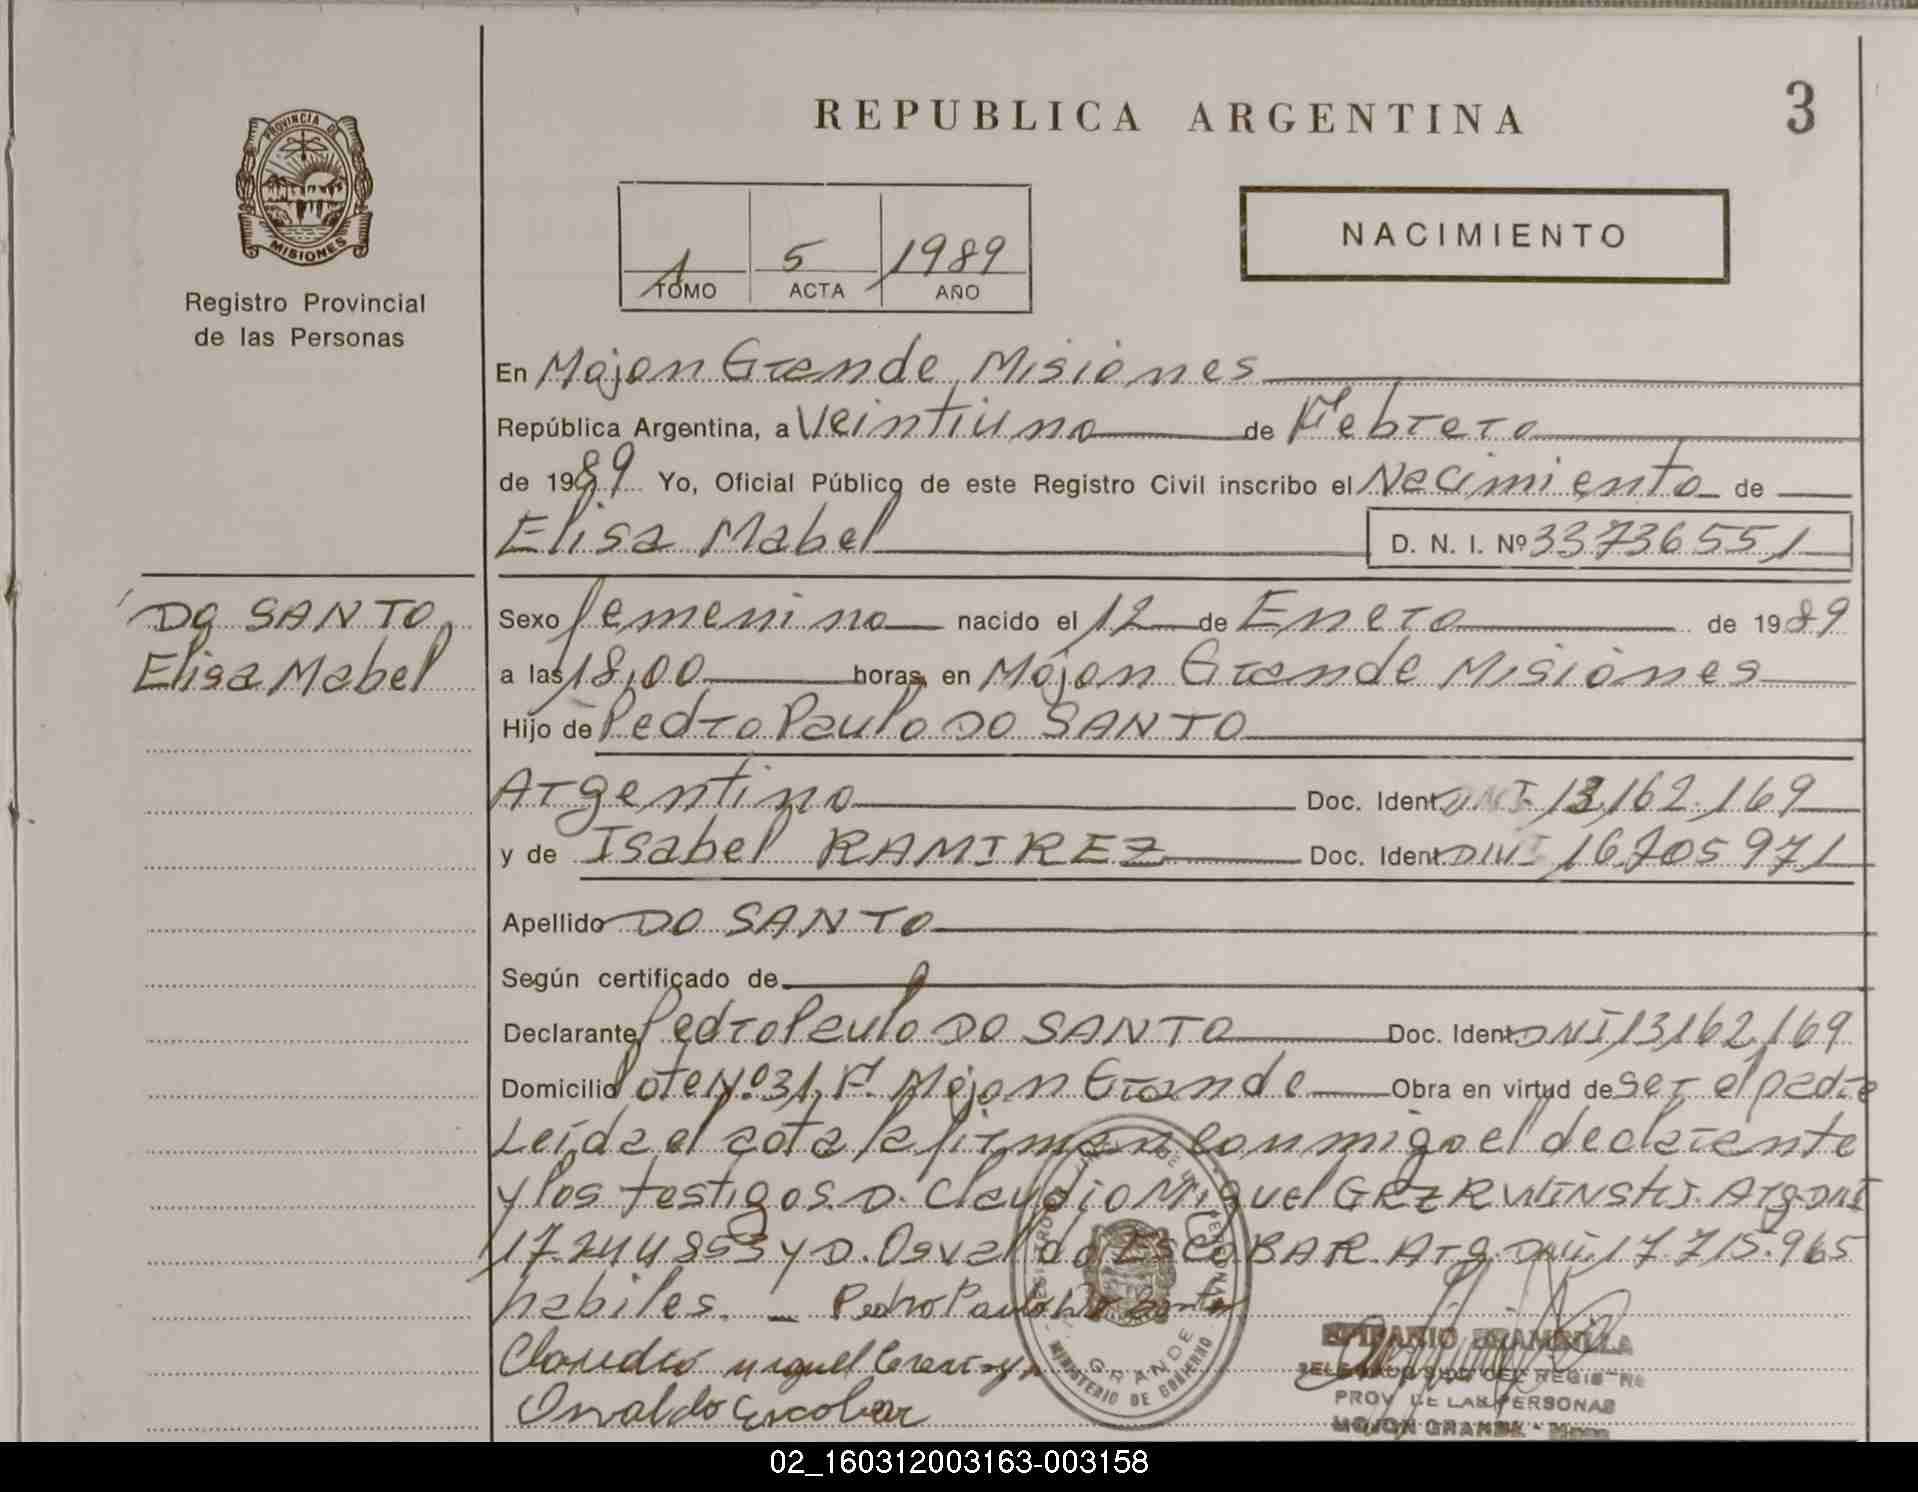 REPUBLICA ARGENTINA
3
PROVINCIA DE
MISIONES
Registro Provincial
de las Personas
1 5 1989
TOMO ACTA AÑO
NACIMIENTO
En Mojon Grande, Misiones
República Argentina, a Veintiuno de Febrero
de 1989 Yo, Oficial Público de este Registro Civil inscribo el Nacimiento de
Elisa Mabel D. N. I. Nº 33736551
DO SANTO
Elisa Mabel
Sexo femenino nacido el 12 de Enero de 1989
a las 18,00 horas, en Mojon Grande Misiones
Hijo de Pedro Paulo DO SANTO
Argentino Doc. Ident. DNI 13.162.169
y de Isabel RAMIREZ Doc. Ident. DNI 16.705971
Apellido DO SANTO
Según certificado de
Declarante Pedro Paulo DO SANTO Doc. Ident. DNI 13.162.169
Domicilio lote Nº 31, F. Mojon Grande Obra en virtud de ser el padre
Leída el acta la firman conmigo el declarante
y los testigos D. Claudio Miguel Arg. DNI
17.244853 y D. Osvaldo ESCOBAR Arg. DNI 17.715.965
habiles. Pedro Paulo Do Santo
Claudio miguel
Osvaldo Escobar
GRANDE
MINISTERIO DE GOBIERNO
BRAMBILLA
DEL REGISTRO
PROV. DE LAS PERSONAS
MOJON GRANDE - Mnes
02_160312003163-003158